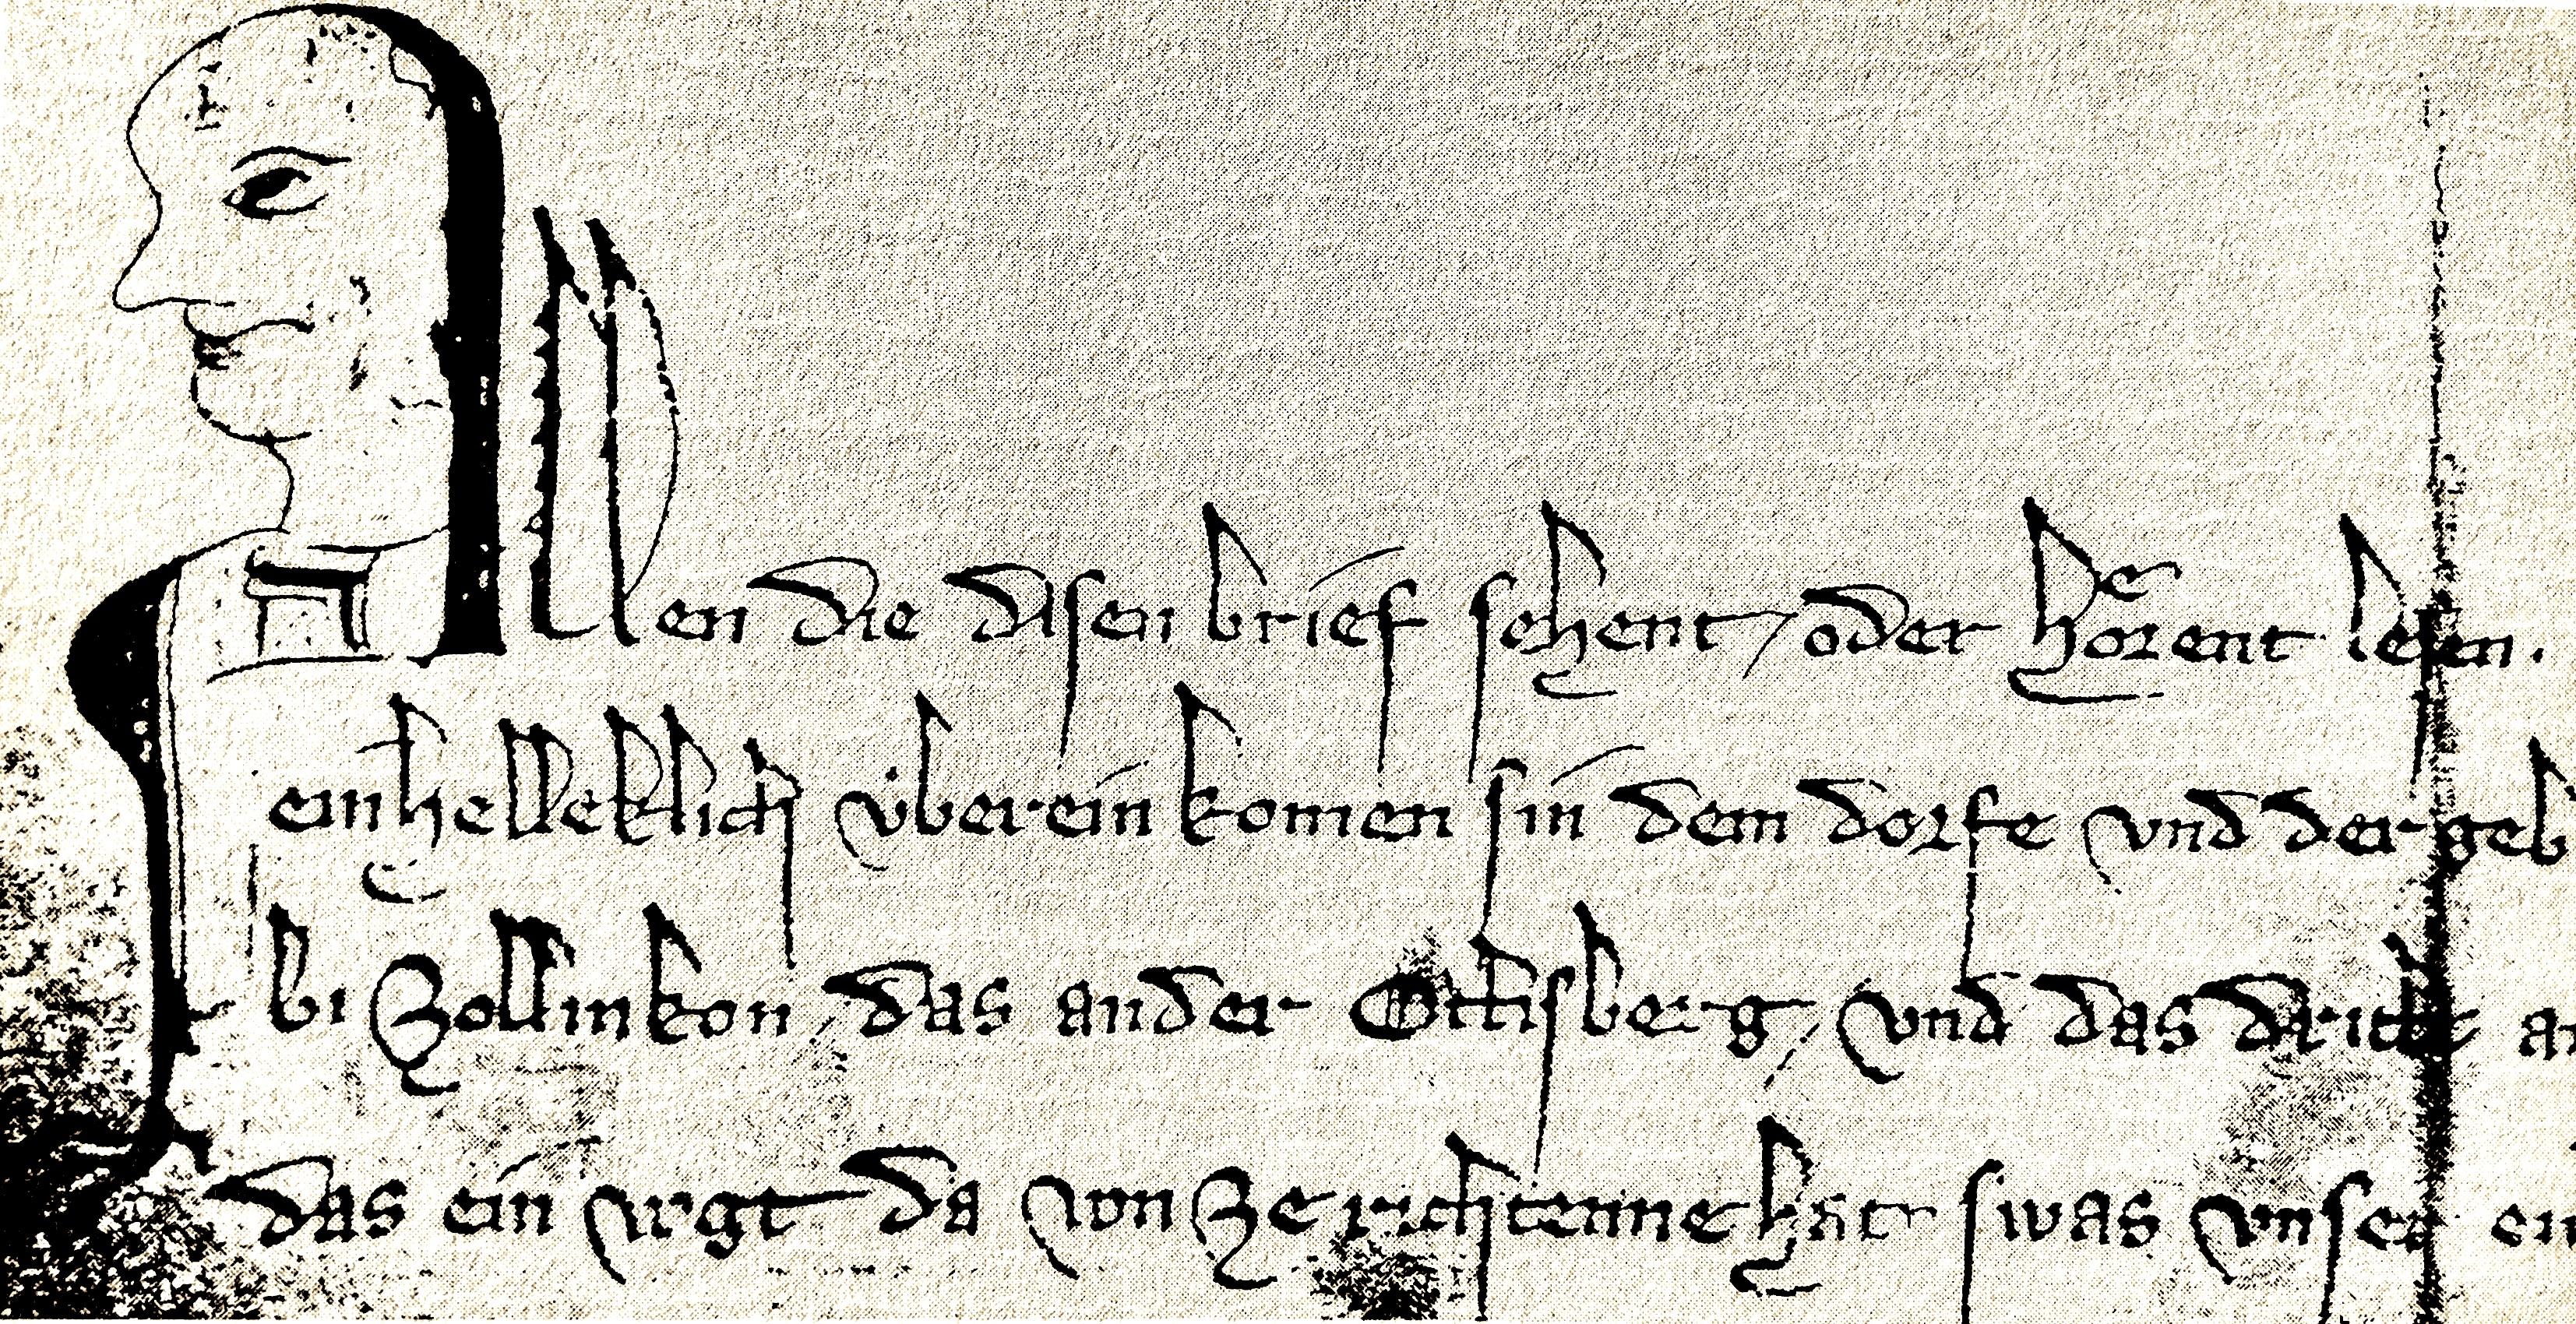 Allen die disen brief sehent / oder hoͤrent lesen.
einhelleklich úberein komen sin dem dorfe vnd der geb
bi Zollinkon das ander Gthisberg, vnd das dritte
das ein vogt da von ze richtenne hat swas vnser ein